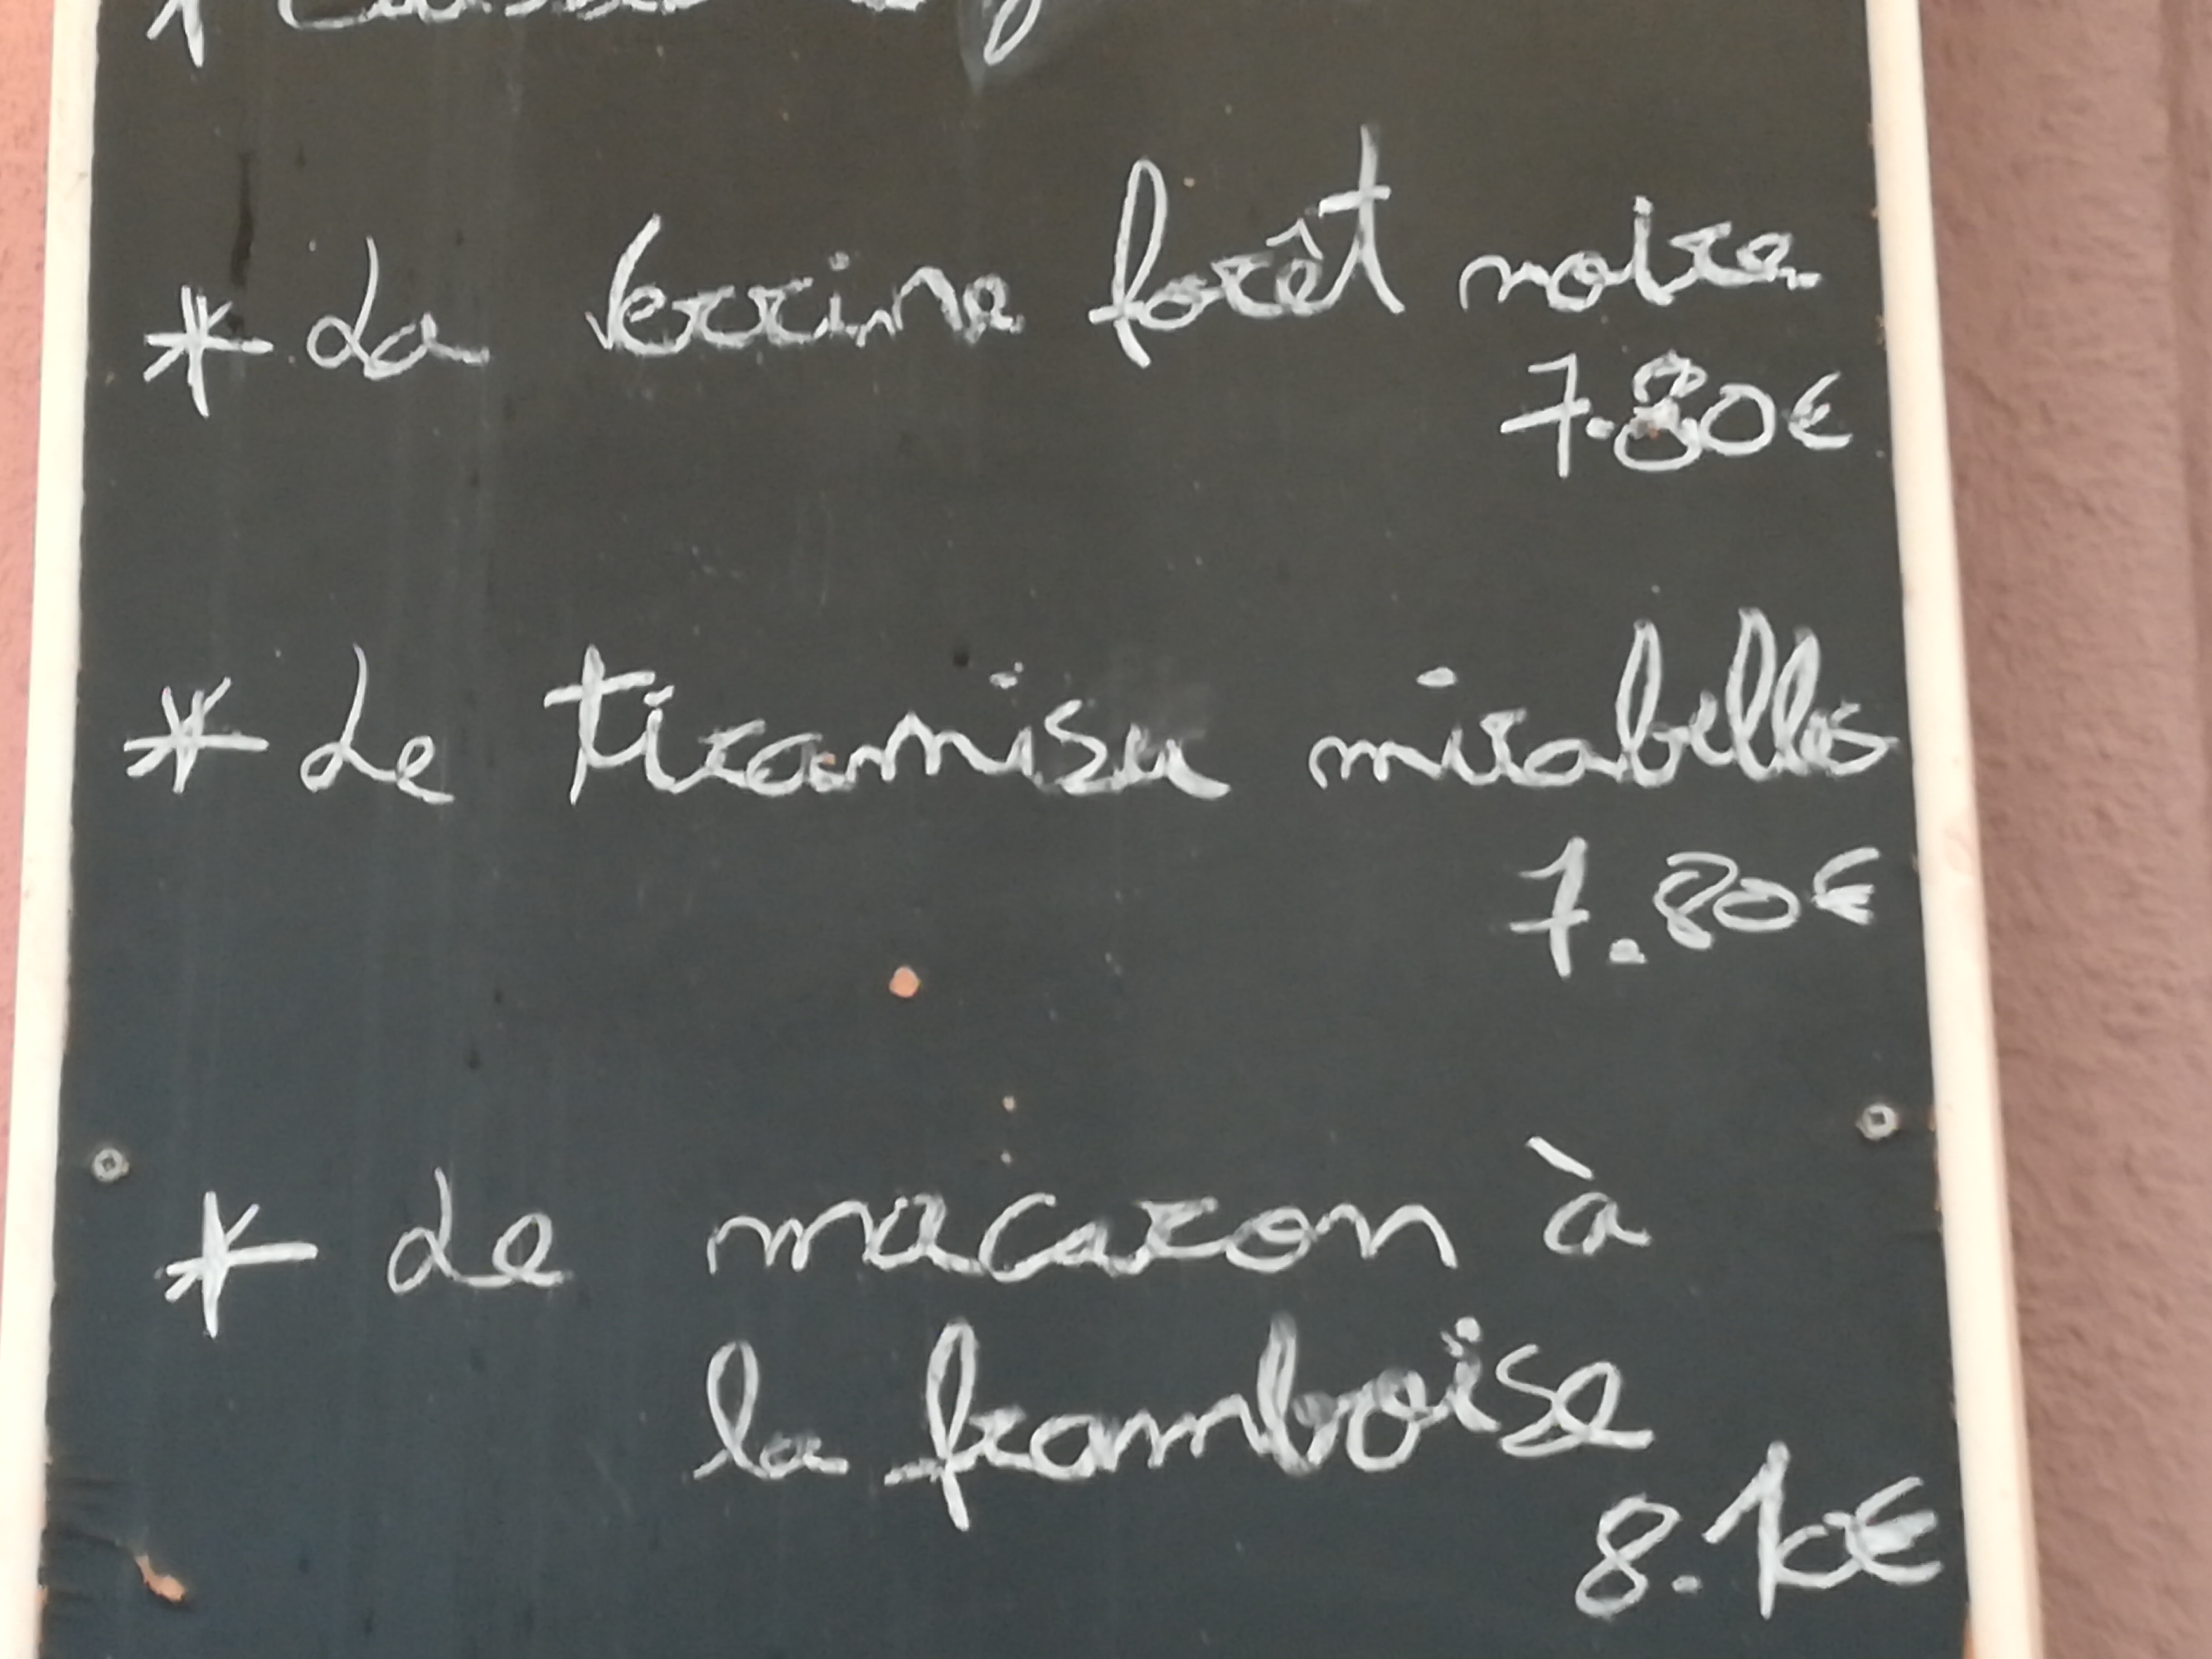 * La verrine forêt noire
7.80€
* Le tiramisu mirabelles
7.80€
* Le macaron à
la framboise
8.10€